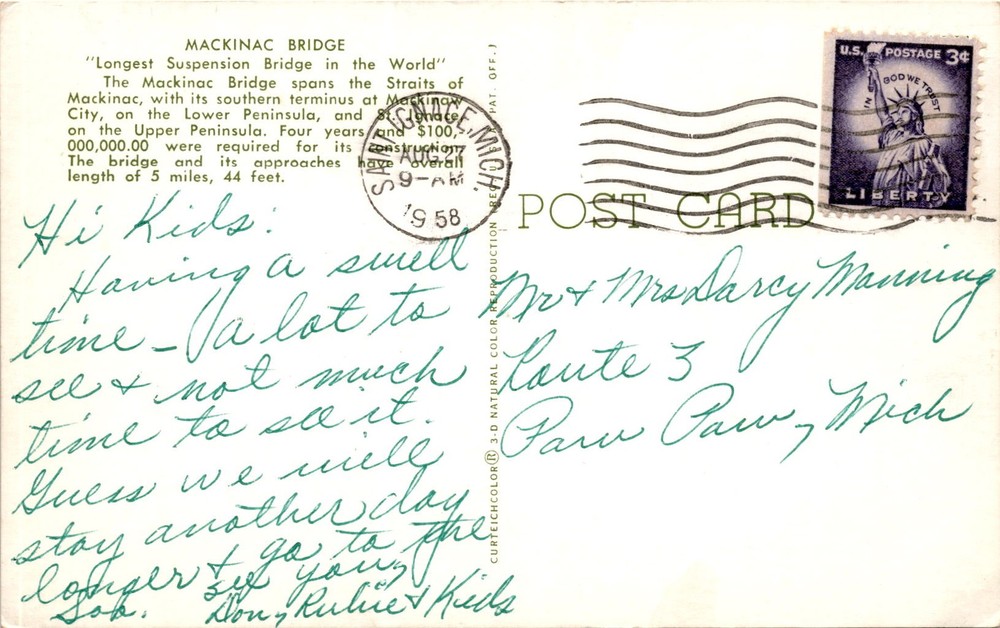 MACKINAC BRIDGE
"Longest Suspension Bridge in the World"
The Mackinac Bridge spans the Straits of
Mackinac, with its southern terminus at Mackinaw
City, on the Lower Peninsula, and St. Ignace,
on the Upper Peninsula. Four years and $100,
000,000.00 were required for its construction.
The bridge and its approaches have overall
length of 5 miles, 44 feet.
SAINT IGNACE, MICH.
AUG 27
9-AM
1958
U.S. POSTAGE 3¢
IN GOD WE TRUST
LIBERTY
POST CARD
Hi Kids:
Having a swell
time - a lot to
see & not much
time to see it.
Guess we will
stay another day
longer & go to the
Soo. see you,
Don, Rubie & Kids
Mr & Mrs Darcy Manning
Route 3
Paw Paw, Mich
CURTEICHCOLOR® 3-D NATURAL COLOR REPRODUCTION (REG. U.S. PAT. OFF.)